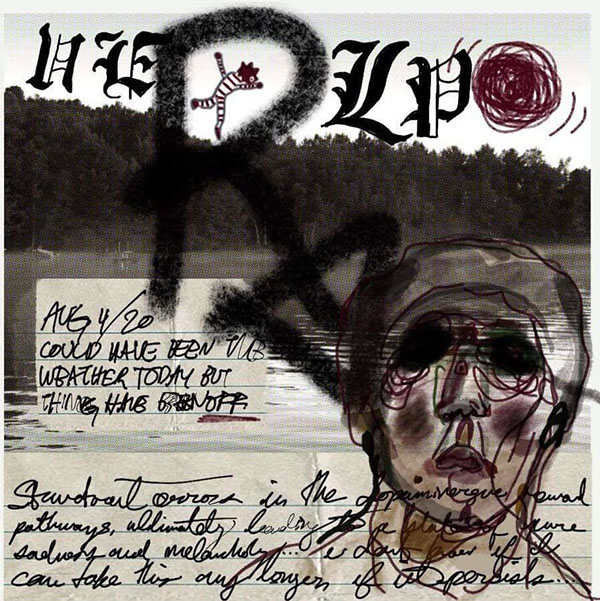 HELP
Rx
AUG 4/20
COULD HAVE BEEN THE
WEATHER TODAY BUT
THINGS HAVE BEEN OFF.
errors in the dopaminergic reward
pathways, ultimately leading to a state of pure
sadness and melancholy... I don't know if I
can take this any longer if it persists...